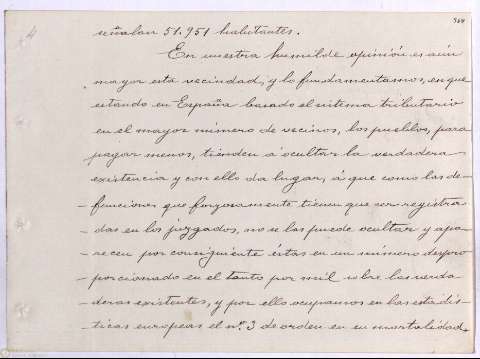 señalan 51.951 habitantes.
En nuestra humilde opinión es aún
mayor esta vecindad, y lo fundamentamos, en que
estando en España basado el sistema tributario
en el mayor número de vecinos, los pueblos, para
pagar menos, tienden á ocultar la verdadera
existencia y con ello da lugar, á que como las de-
funciones que forzosamente tienen que ser registra-
das en los juzgados, no se las puede ocultar y apa-
recen por consiguiente éstas en un número despro
porcionado en el tanto por mil sobre las verda
deras existentes, y por ello ocupamos en las estadís-
ticas europeas el nº. 3 de orden en su mortalidad.